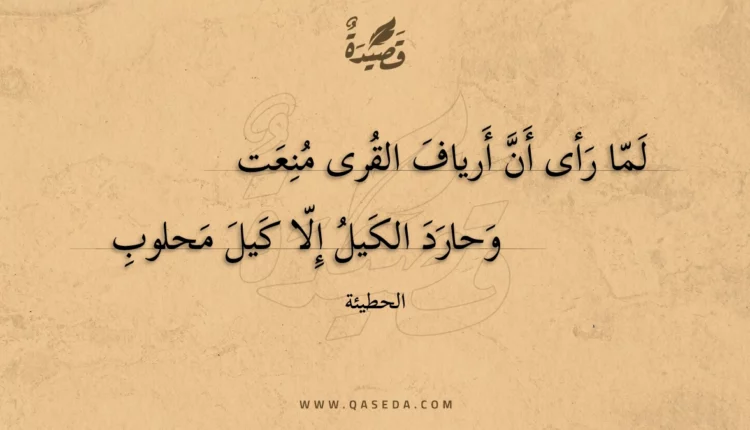 قَصِيْدَةٌ
لَمّا رَأى أَنَّ أَريافَ القُرى مُنِعَت
وَحارَدَ الكَيلُ إِلّا كَيلَ مَحلوبِ
الحطيئة
WWW.QASEDA.COM